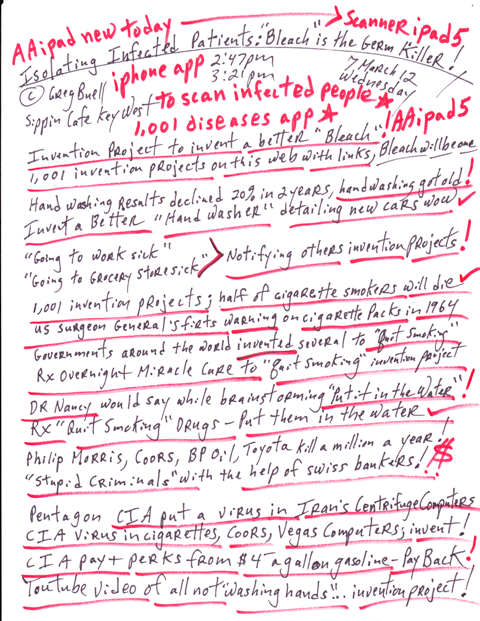 AAipad new today → Scanner ipad5
Isolating Infected Patients: "Bleach" is the Germ Killer!
© Greg Buell iphone app 2:47pm 7 March 12
3:21pm Wednesday
Sippin Cafe Key West to scan infected people ★
1,001 diseases app ★ AAipad5
Invention Project to invent a better "Bleach"!
1,001 invention projects on this web with links, Bleach will be one
Hand washing Results declined 20% in 2 years, handwashing got old!
Invent a Better "Hand washer" detailing new cars wow ✓
"Going to work sick"
"Going to Grocery store sick" > Notifying others invention projects!
1,001 invention projects; half of cigarette smokers will die ✓
us Surgeon General's firts warning on cigarette Packs in 1964
Governments around the world invented several to "Quit Smoking"
Rx Overnight Miracle Cure to "Quit Smoking" invention project
DR Nancy would say while brainstorming "Put it in the Water"!
Rx "Quit Smoking" Drugs - Put them in the water ✓
Philip Morris, Coors, BP Oil, Toyota kill a million a year!
"Stupid Criminals" with the help of swiss bankers! $
Pentagon CIA put a virus in Iran's Centrifuge Computers
CIA Virus in cigarettes, Coors, Vegas Computers; invent!
CIA pay + perks from $4 - a gallon gasoline - Pay Back!
Youtube video of all not "washing hands"... invention project!